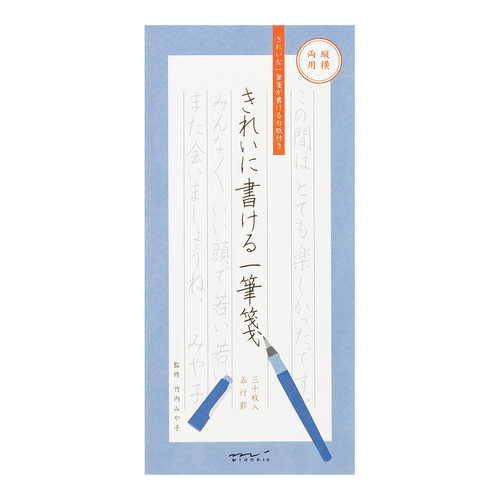 縦横
両用
きれいな一筆箋が書ける台紙付き
この間は とても 楽しかったです。
きれいに書ける一筆箋
みんなよく いい顔で 若い若い
また 会いましょうね。 みや子
三十枚入
五行罫
監修 竹内みや子
MIDORI